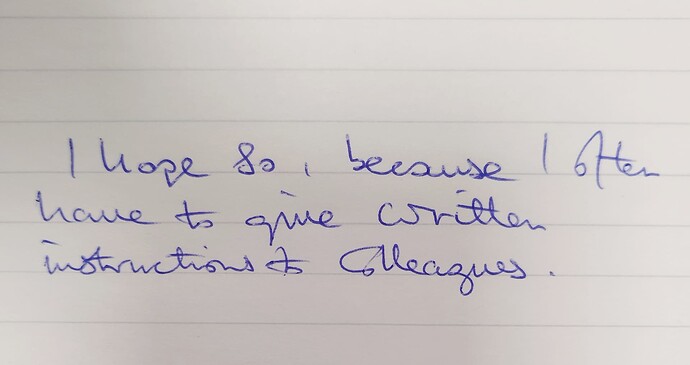 I hope so, because I often
have to give written
instructions to colleagues.